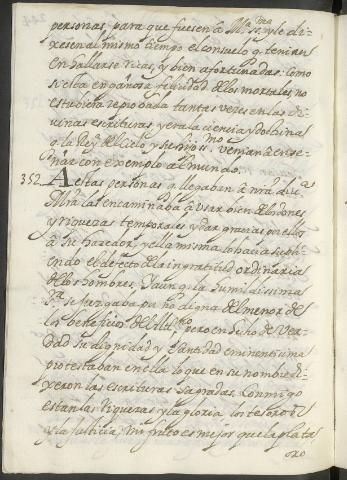 personas para que fuesen á Mª Sma y le di=
xesen al mismo tiempo el consuelo q tenian
en hallarse ricas, y bien afortunadas: como
si esta engañosa felicidad de los mortales no
estubiera reprobada tantas veces en las di=
uinas escrituras, y era la ciencia y doctrina
q la Reyª del Cielo y su hijo SSmo venian á ense=
ñar con exemplo al mundo.
352 A estas personas q llegaban á nrâ diuª
Mrâ las encaminaba á usar bien de los dones
y riquezas temporales, y dar gracias por ellos
á su hazedor, y ella misma lo hacia supli=
endo el defecto de la ingratitud ordinaria
de los hombres. Y aunq la humildissima
Sª se juzgaba pr no digna del menor de
los beneficios del Altmo pero en hecho de ver=
dad su dignidad y santidad eminentisima
protestaban en ella lo que en su nombre di=
xeron las escrituras sagradas. Conmigo
estan las riquezas y la gloria los tesoros
y la justicia; mi fruto es mejor que la plata
oro